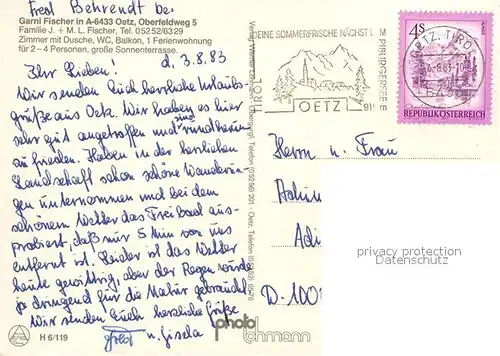 Fred Behrendt bei
Garni Fischer in A-6433 Oetz, Oberfeldweg 5
Familie J. + M. L. Fischer, Tel. 05252/6329
Zimmer mit Dusche, WC, Balkon, 1 Ferienwohnung
für 2–4 Personen, große Sonnenterrasse.
d. 3.8.83
Ihr Lieben!
Wir senden Euch herzliche Urlaubs
grüße aus Oetz. Wir haben es hier
sehr gut angetroffen und sind rundherum
zufrieden. Haben in der herrlichen
Landschaft schon schöne Wanderun
gen unternommen und bei dem
schönen Wetter das Freibad aus-
probiert, daß nur 5 Min von uns
entfernt ist. Leider ist das Wetter
heute gewittrig, aber der Regen wird
ja dringend für die Natur gebraucht.
Wir senden Euch herzliche Grüße
Fred u. Gisela
H 6/119
DEINE SOMMERFRISCHE NÄCHST
TIROL
OETZ
PIBURGERSEE
OETZ, TIROL
4 S
REPUBLIK ÖSTERREICH
Herrn u. Frau
D-1000
privacy protection
Datenschutz
photo
lohmann